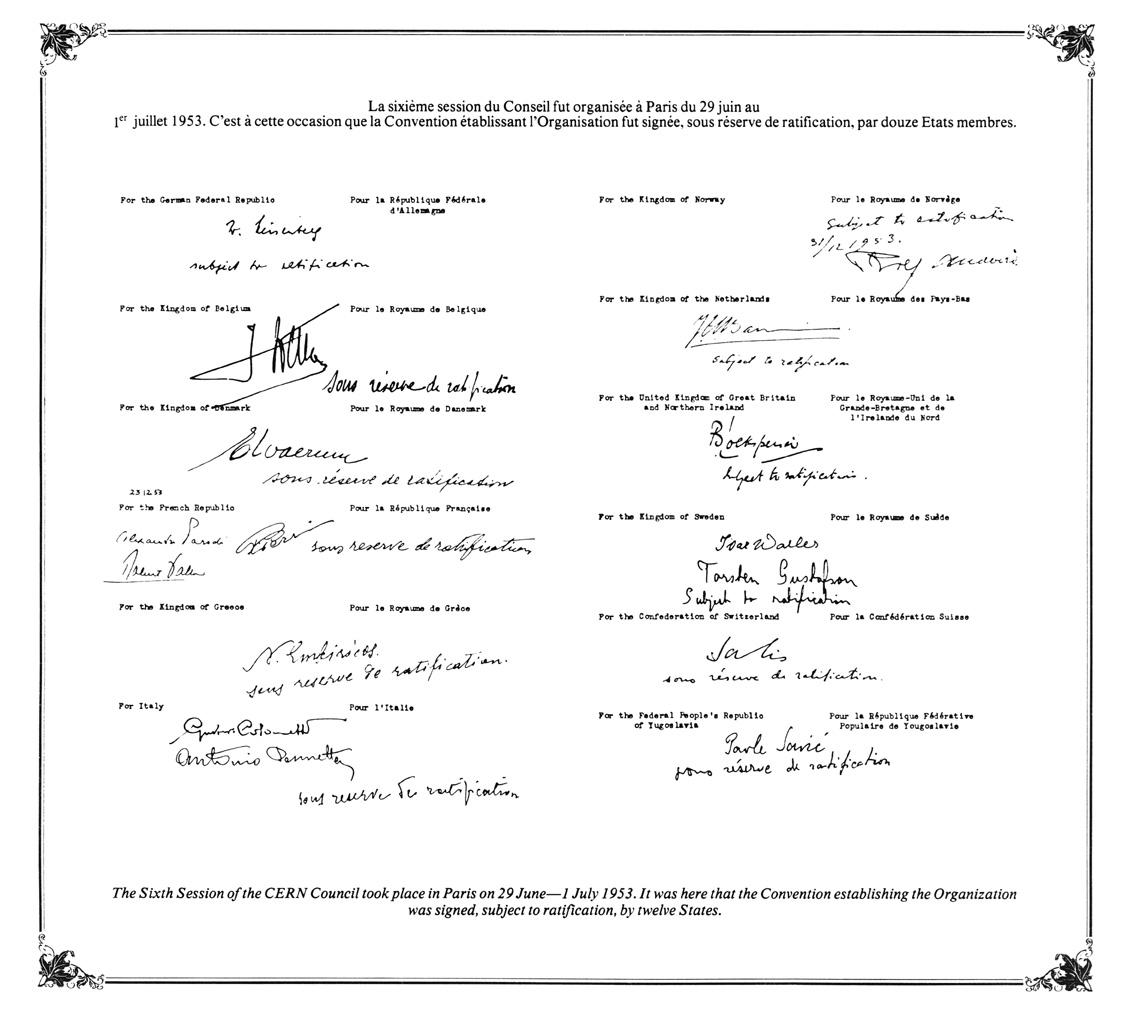 La sixième session du Conseil fut organisée à Paris du 29 juin au
1er juillet 1953. C'est à cette occasion que la Convention établissant l'Organisation fut signée, sous réserve de ratification, par douze Etats membres.
For the German Federal Republic
Pour la République Fédérale
d'Allemagne
subject to ratification
For the Kingdom of Belgium
Pour le Royaume de Belgique
sous réserve de ratification
For the Kingdom of Denmark
Pour le Royaume de Danemark
sous réserve de ratification
23 12 53
For the French Republic
Pour la République Française
Alexandre Parodi
sous reserve de ratification
For the Kingdom of Greece
Pour le Royaume de Grèce
N. Embiricos.
sous reserve de ratification.
For Italy
Pour l'Italie
Gustavo Colonnetti
Antonio Pennetta
sous reserve de ratification
For the Kingdom of Norway
Pour le Royaume de Norvège
Subject to ratification
31/12 1953.
Rolf
For the Kingdom of the Netherlands
Pour le Royaume des Pays-Bas
subject to ratification
For the United Kingdom of Great Britain
and Northern Ireland
Pour le Royaume-Uni de la
Grande-Bretagne et de
l'Irelande du Nord
subject to ratification.
For the Kingdom of Sweden
Pour le Royaume de Suède
Ivar Waller
Torsten Gustafson
Subject to ratification
For the Confederation of Switzerland
Pour la Confédération Suisse
Salis
sous réserve de ratification.
For the Federal People's Republic
of Yugoslavia
Pour la République Fédérative
Populaire de Yougoslavie
Pavle Savić
sous réserve de ratification
The Sixth Session of the CERN Council took place in Paris on 29 June—1 July 1953. It was here that the Convention establishing the Organization
was signed, subject to ratification, by twelve States.